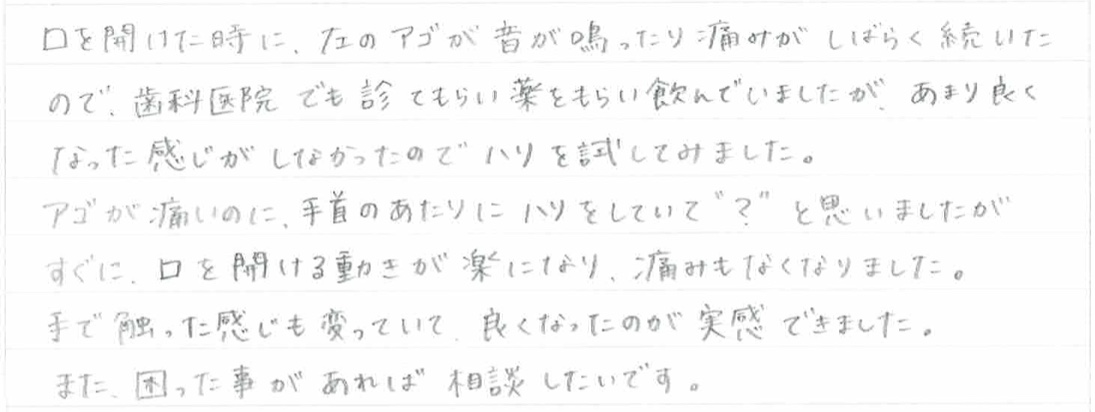 口を開けた時に、左のアゴが音が鳴ったり痛みがしばらく続いた
ので、歯科医院でも診てもらい薬をもらい飲んでいましたが、あまり良く
なった感じがしなかったのでハリを試してみました。
アゴが痛いのに、手首のあたりにハリをしていて"?"と思いましたが
すぐに、口を開ける動きが楽になり、痛みもなくなりました。
手で触った感じも変っていて、良くなったのが実感できました。
また、困った事があれば相談したいです。